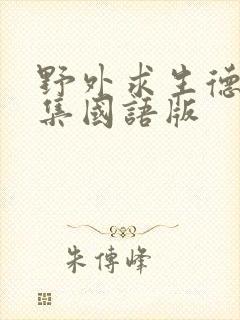 野外求生德
集國語版
朱傳峰